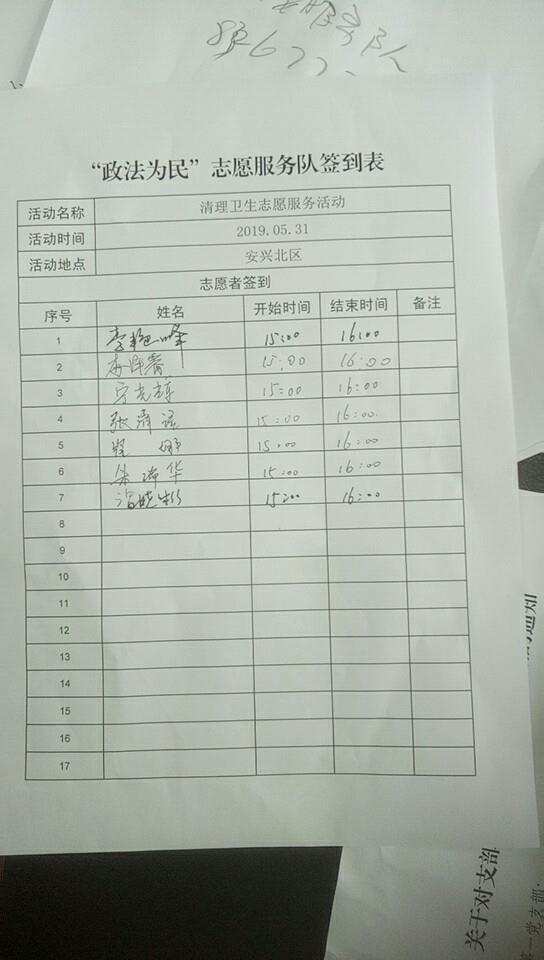 服务队
“政法为民”志愿服务队签到表
活动名称 清理卫生志愿服务活动
活动时间 2019.05.31
活动地点 安兴北区
志愿者签到
序号 姓名 开始时间 结束时间 备注
1 李艳峰 15:00 16:00
2 15:00 16:00
3 15:00 16:00
4 张 15:00 16:00
5 15:00 16:00
6 朱瑞华 15:00 16:00
7 15:00 16:00
8
9
10
11
12
13
14
15
16
17
关于对支部
第一党支部: